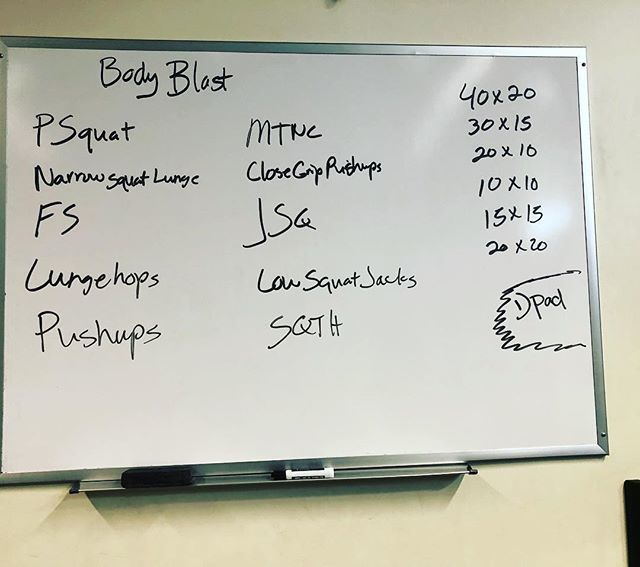 Body Blast
PSquat
Narrow Squat Lunge
FS
Lungehops
Pushups
MTNC
Close Grip Pushups
JSQ
Low Squat Jacks
SQTH
40x20
30x15
20x10
10x10
15x15
20x20